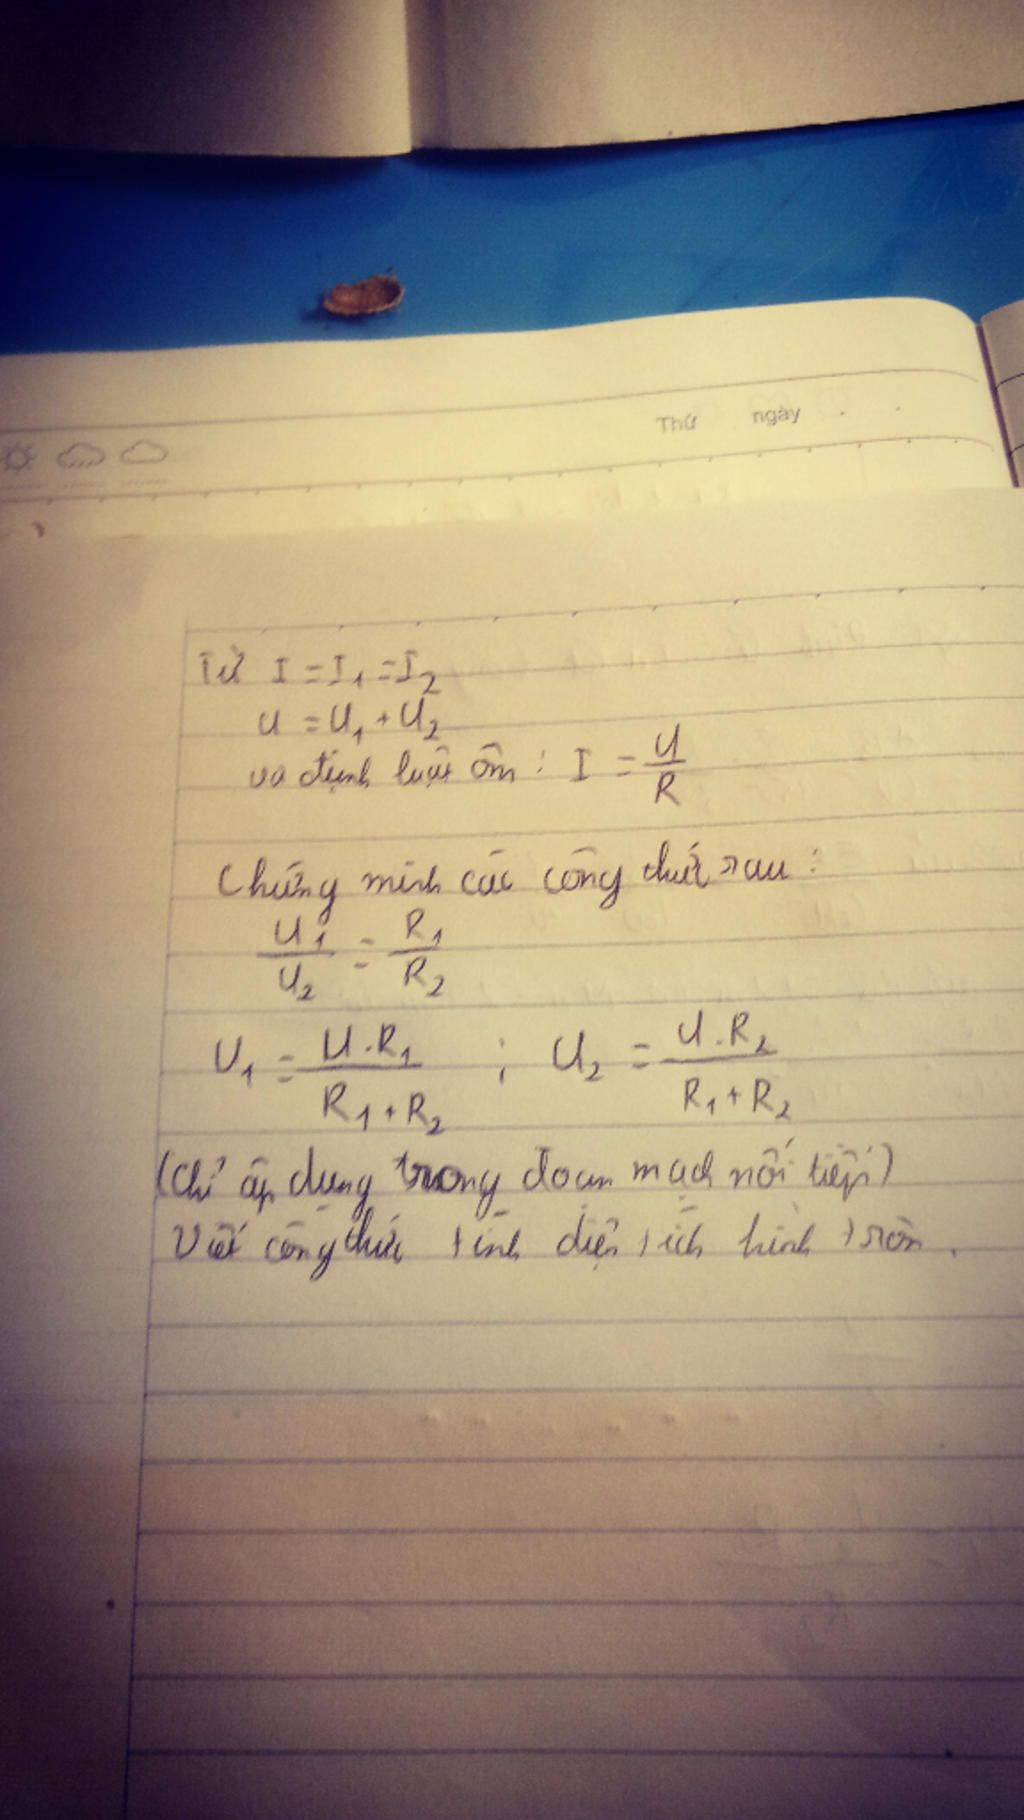 Thứ ngày . .
Từ I = I₁ = I₂
U = U₁ + U₂
và định luật ôm : I = U/R
Chứng minh các công thức sau :
U₁/U₂ = R₁/R₂
U₁ = U.R₁/(R₁+R₂) ; U₂ = U.R₂/(R₁+R₂)
(Chỉ áp dụng trong đoạn mạch nối tiếp)
Viết công thức tính diện tích hình tròn .